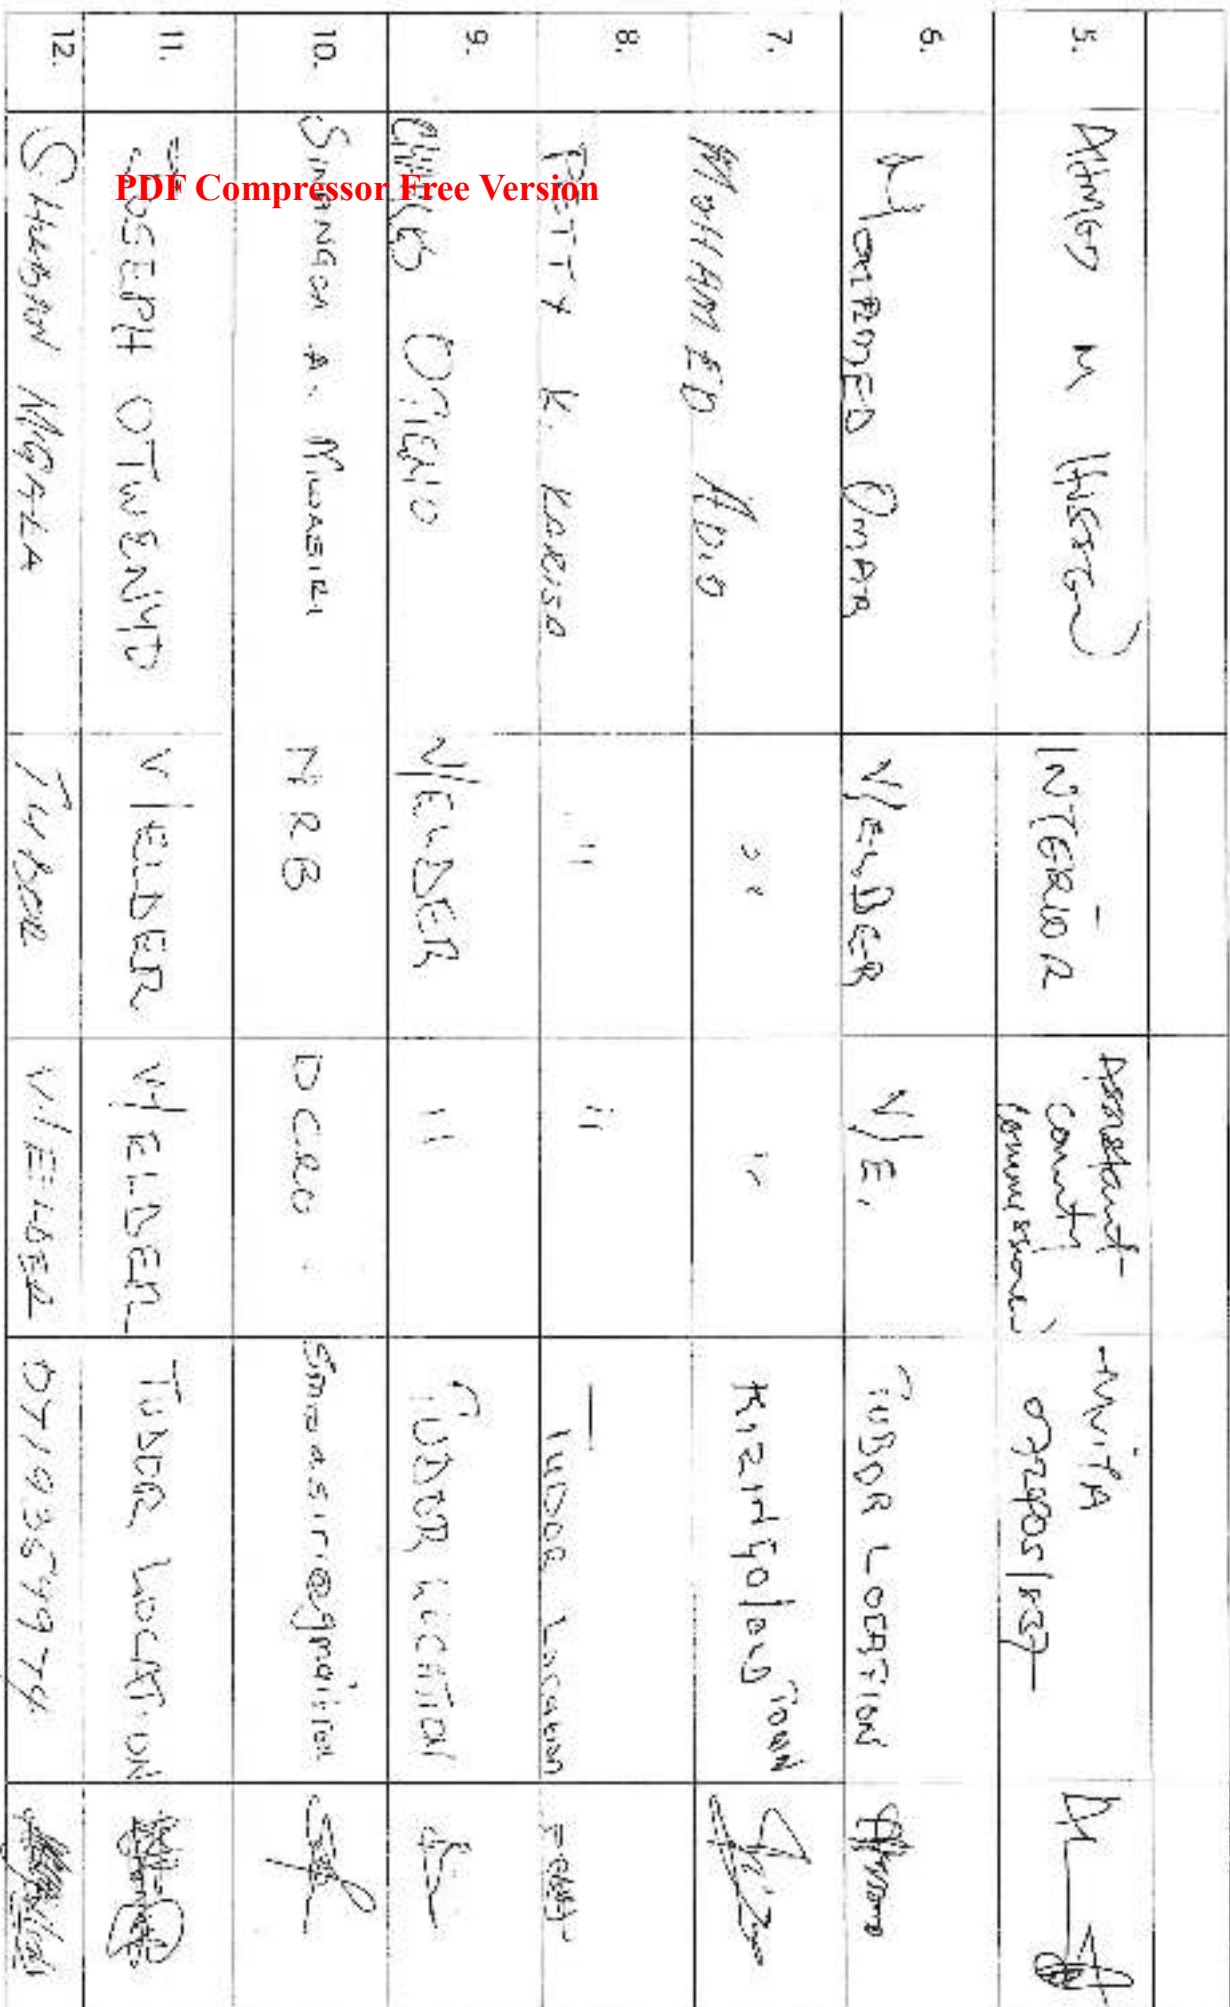 PDF Compressor Free Version
5. AHMED M HUSSEIN INTERIOR Assistant County Commissioner MVITA
6. MOHAMMED OMAR V/ELDER V/E. TUDOR LOCATION
7. MOHAMED ABID " " KIZINGO/OLD TOWN
8. BETTY K. KARISA " " TUDOR Location
9. OTIENO V/ELDER " TUDOR LOCATION
10. A. MWASIRI NRB DCRO. smwasiri@gmail.com
11. JOSEPH OTWENYO V/ELDER V/ELDER TUDOR LOCATION
12. SHABAN NGALA TUDOR V/ELDER 0719354974